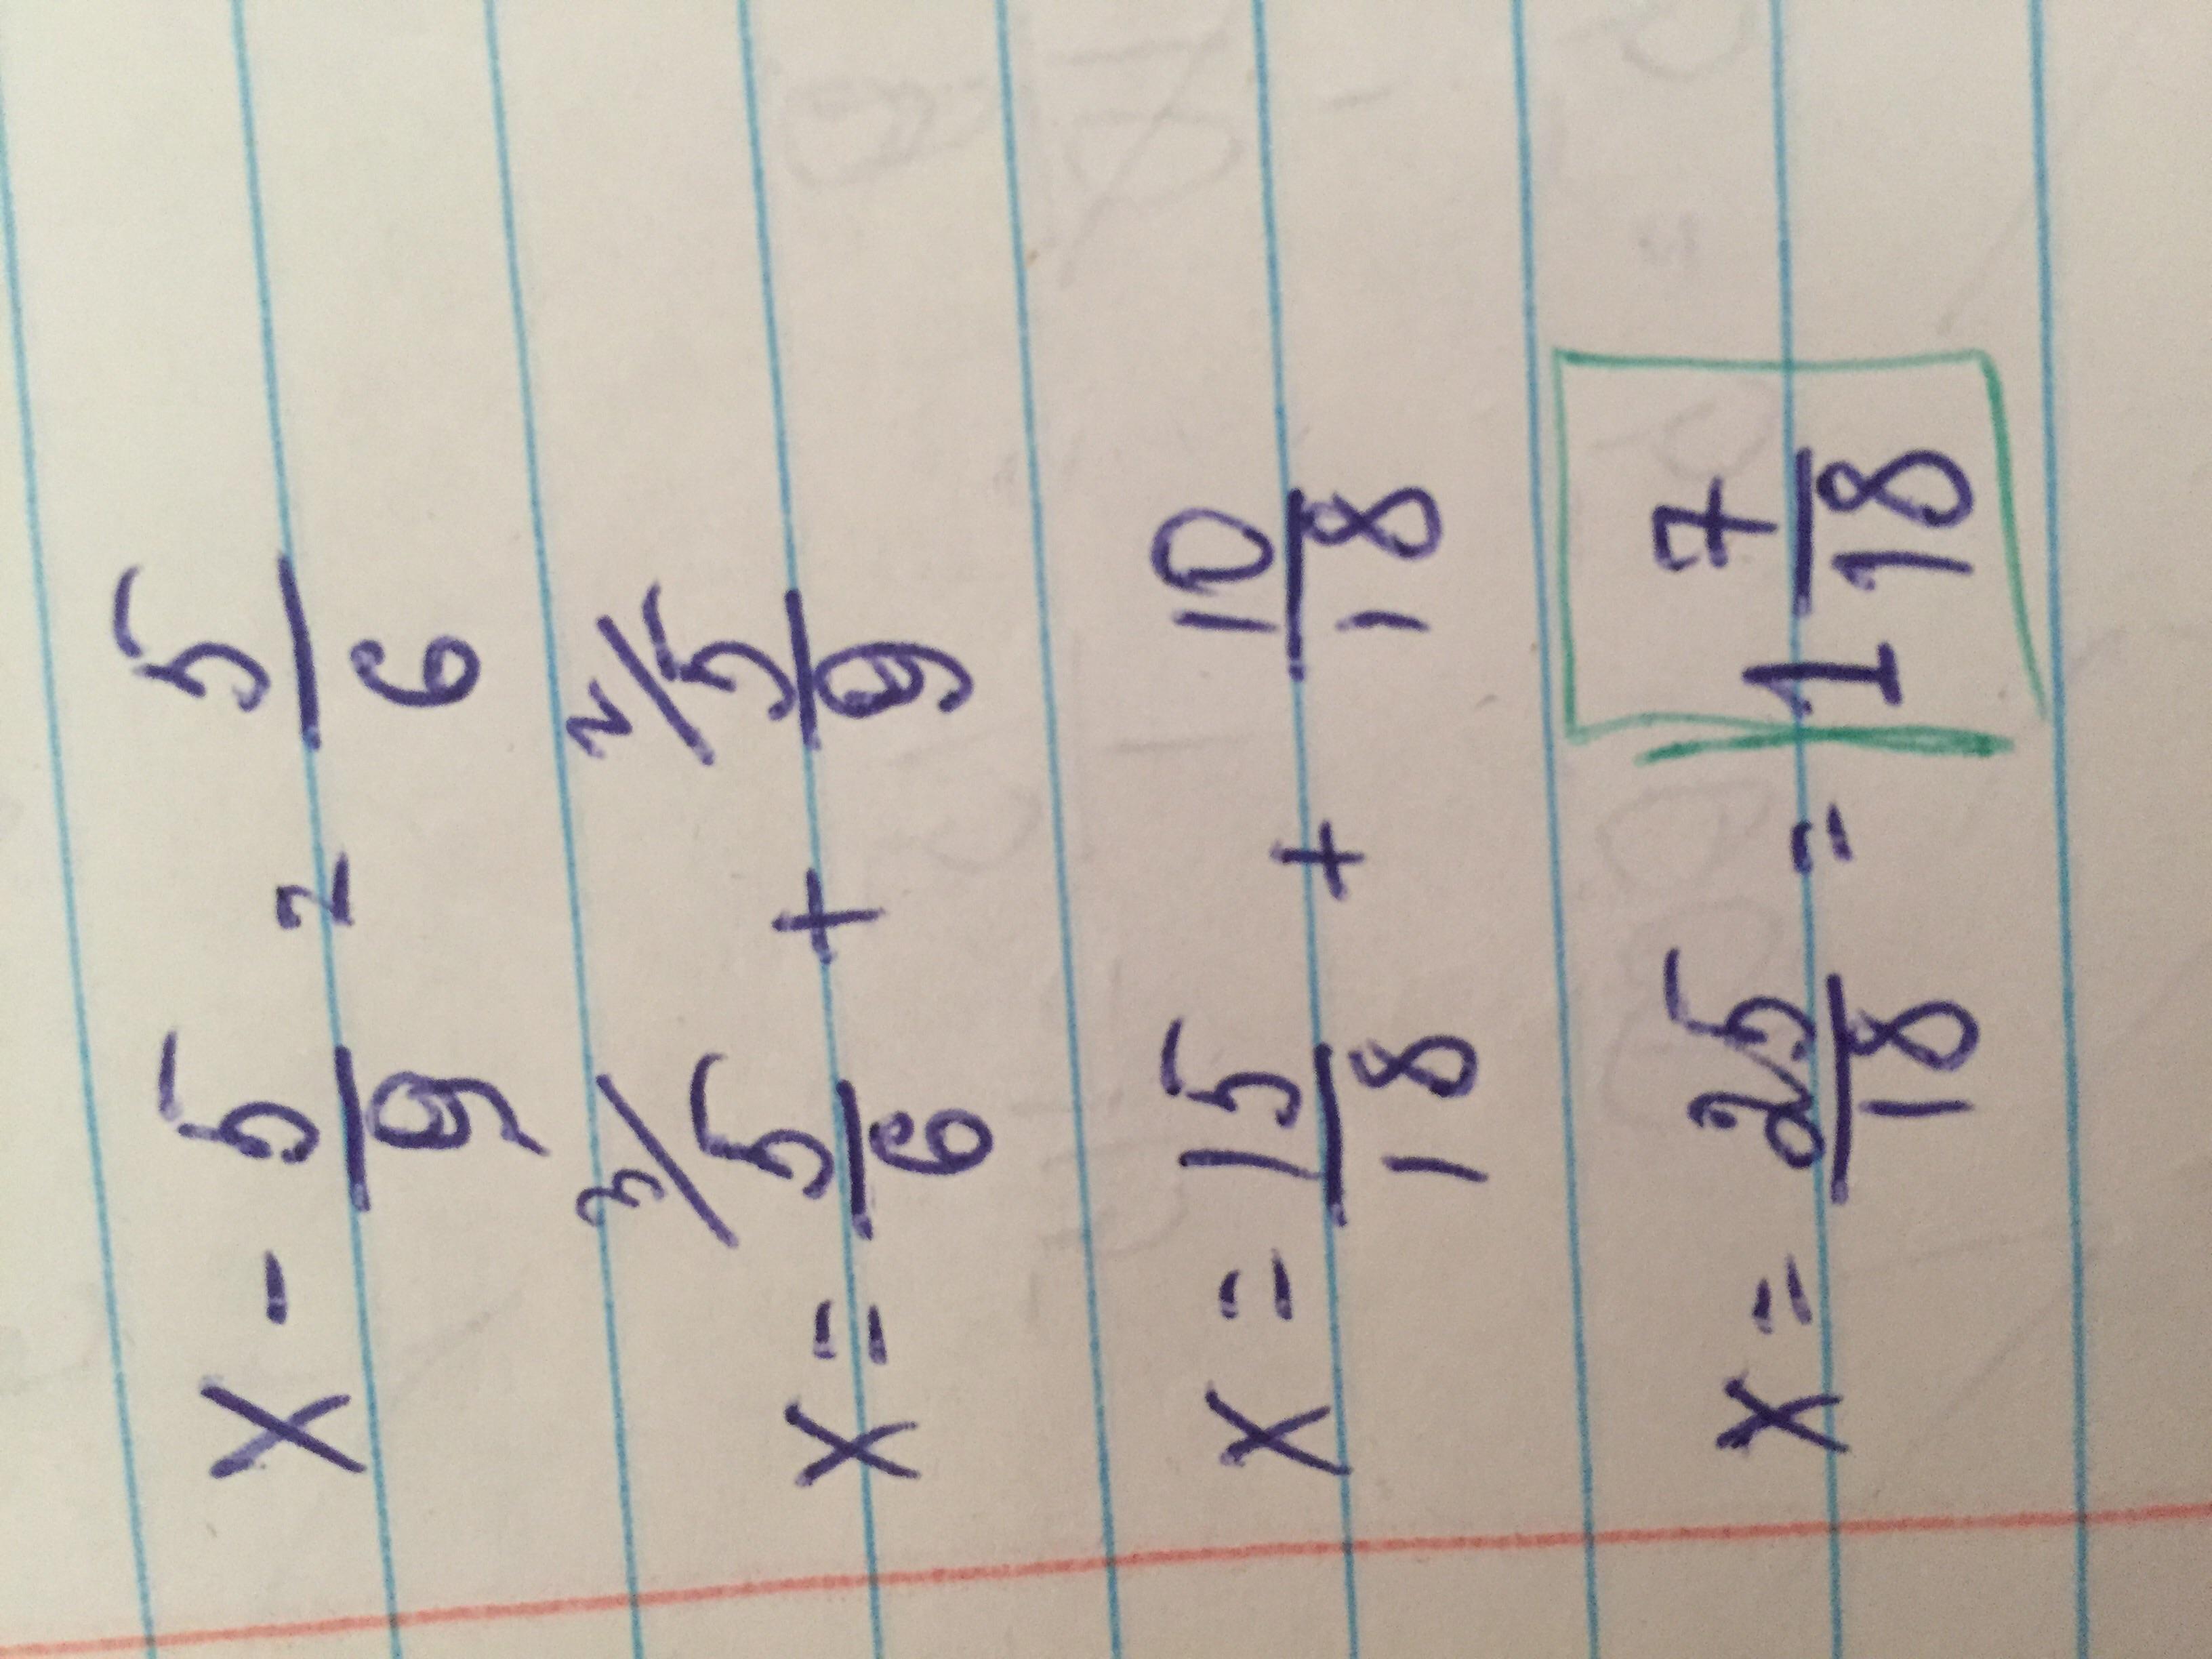 X - 5/9 = 5/6
X = 3/ 5/6 + 2/ 5/9
X = 15/18 + 10/18
X = 25/18 = 1 7/18